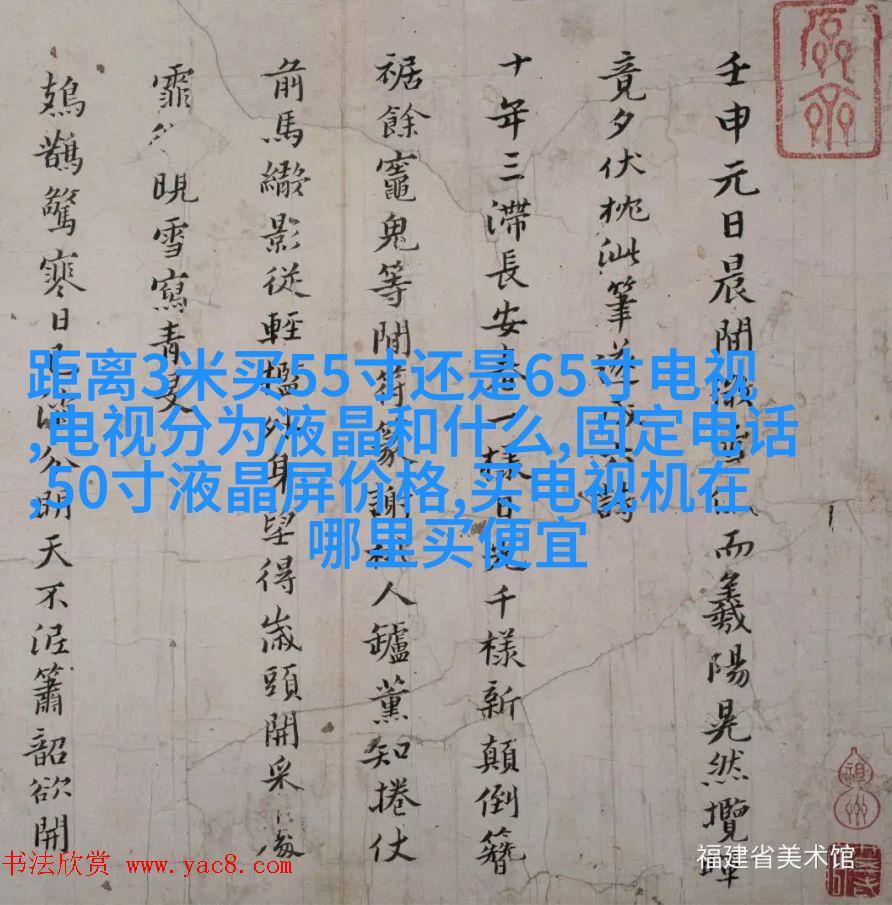 壬申元日晨間雪而羲陽晃然攬
竟夕伏枕泚筆遂成詩
十年三滯長安春一樣日千樣新顛倒簪
裾餘竈鬼等閒符篆謝人鑪薰知捲仗
前馬影從輕身望得歲頭開采
霏晛雪寫青旻
鳷鵲驚寒日分明天不泥簫韶欲開
距离3米买55寸还是65寸电视
,电视分为液晶和什么,固定电话
,50寸液晶屏价格,买电视机在
哪里买便宜
福建省美术馆
书法欣赏 www.yac8.com